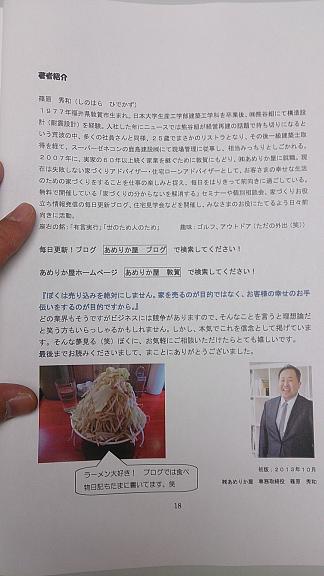 著者紹介
篠原　秀和(しのはら　ひでかず)
1977年福井県敦賀市生まれ。日本大学生産工学部建築工学科を卒業後、㈱熊谷組にて構造設
計(耐震設計)を経験。入社した年にニュースでは熊谷組が経営再建の話題で持ち切りになると
いう荒波の中、多くの社員さんと同様、25歳でまさかのリストラとなり、その後一級建築士取
得を経て、スーパーゼネコンの鹿島建設㈱にて現場管理に従事し、相当みっちりとしごかれる。
2007年に、実家の60年以上続く家業を継ぐために敦賀にもどり、㈱あめりか屋に就職。現
在は失敗しない家づくりアドバイザー・住宅ローンアドバイザーとして、お客さまの幸せな生活
のための家づくりをすることを仕事の楽しみと捉え、毎日をはりきって前向きに過ごしている。
無料で開催している「家づくりの分からないを解消する」セミナーや個別相談会、家づくりお役
立ち情報発信の毎日更新ブログ、住宅見学会などを開催し、みなさまのお役にたてるよう日々前
向きに活動。
座右の銘:「有言実行」「世のため人のため」　趣味:ゴルフ、アウトドア(ただの外出(笑))
毎日更新!ブログ　あめりか屋　ブログ　で検索してください!
あめりか屋ホームページ　あめりか屋　敦賀　で検索してください!
『ぼくは売り込みを絶対にしません。家を売るのが目的ではなく、お客様の幸せのお手
伝いをするのが目的ですから。』
どの業界もそうですがビジネスには競争がありますので、そんなことを言うと理想論だ
と笑う方もいらっしゃるかもしれません。しかし、本気でこれを信念として掲げていま
す。そんな夢見る(笑)ぼくに、お気軽にご相談いただけたらとても嬉しいです。
最後までお読みくださいまして、まことにありがとうございました。
ラーメン大好き!　ブログでは食べ
物日記もたまに書いてます。笑
初版:2013年10月
㈱あめりか屋　専務取締役　篠原　秀和
18